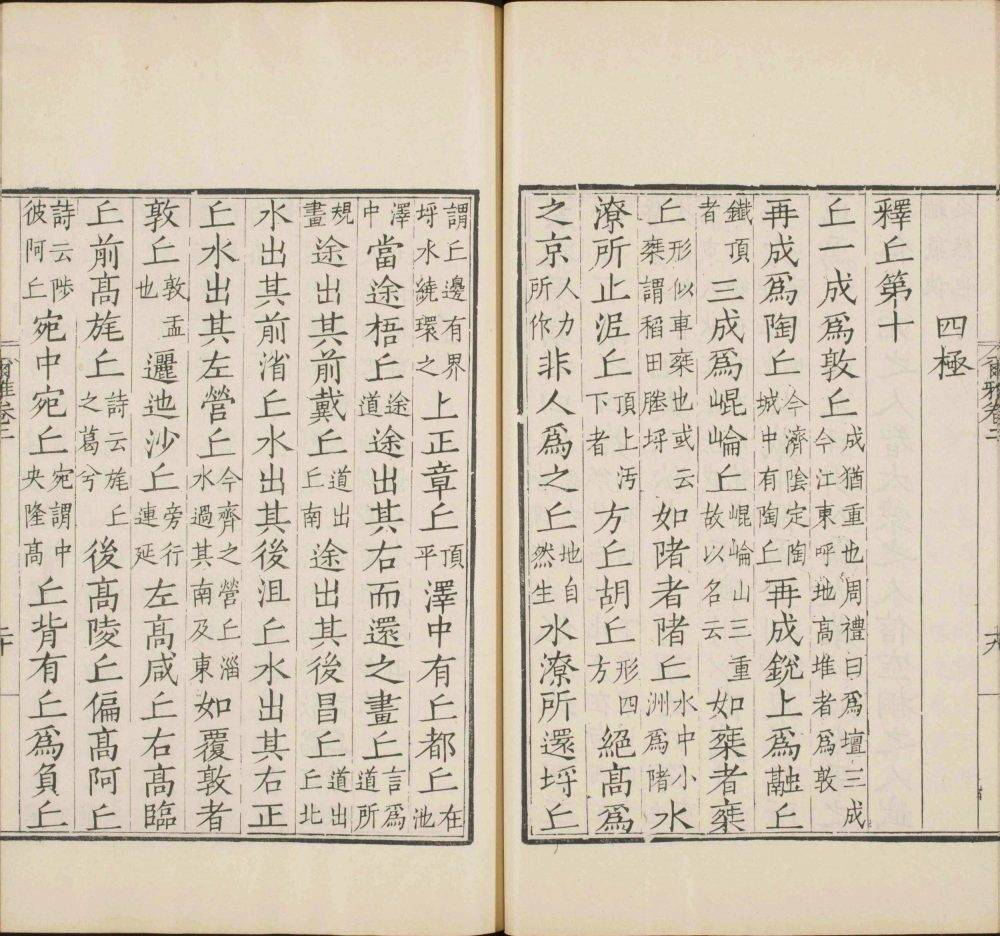 四極
釋丘第十
丘一成爲敦丘成猶重也周禮曰爲壇三成今江東呼地高堆者爲敦
再成爲陶丘今濟陰定陶城中有陶丘再成銳上爲融丘
鐵頂者三成爲崐崘丘崐崘山三重故以名云如椉者椉
丘形似車椉也或云椉謂稻田塍埒如陼者陼丘水中小洲爲陼水
潦所止泥丘頂上汚下者方丘胡丘形四方絕高爲
之京人力所作非人爲之丘地自然生水潦所還埒丘
謂丘邊有界埒水繞環之上正章丘頂平澤中有丘都丘在池
澤中當途梧丘途道途出其右而還之畫丘言爲道所
規畫途出其前戴丘道出丘南途出其後昌丘道出丘北
水出其前渻丘水出其後沮丘水出其右正
丘水出其左營丘今齊之營丘淄水過其南及東如覆敦者
敦丘敦盂也邐迆沙丘旁行連延左高咸丘右高臨
丘前高旄丘詩云旄丘之葛兮後高陵丘偏高阿丘
詩云陟彼阿丘宛中宛丘宛謂中央隆高丘背有丘爲負丘
爾雅卷二
十九
二十